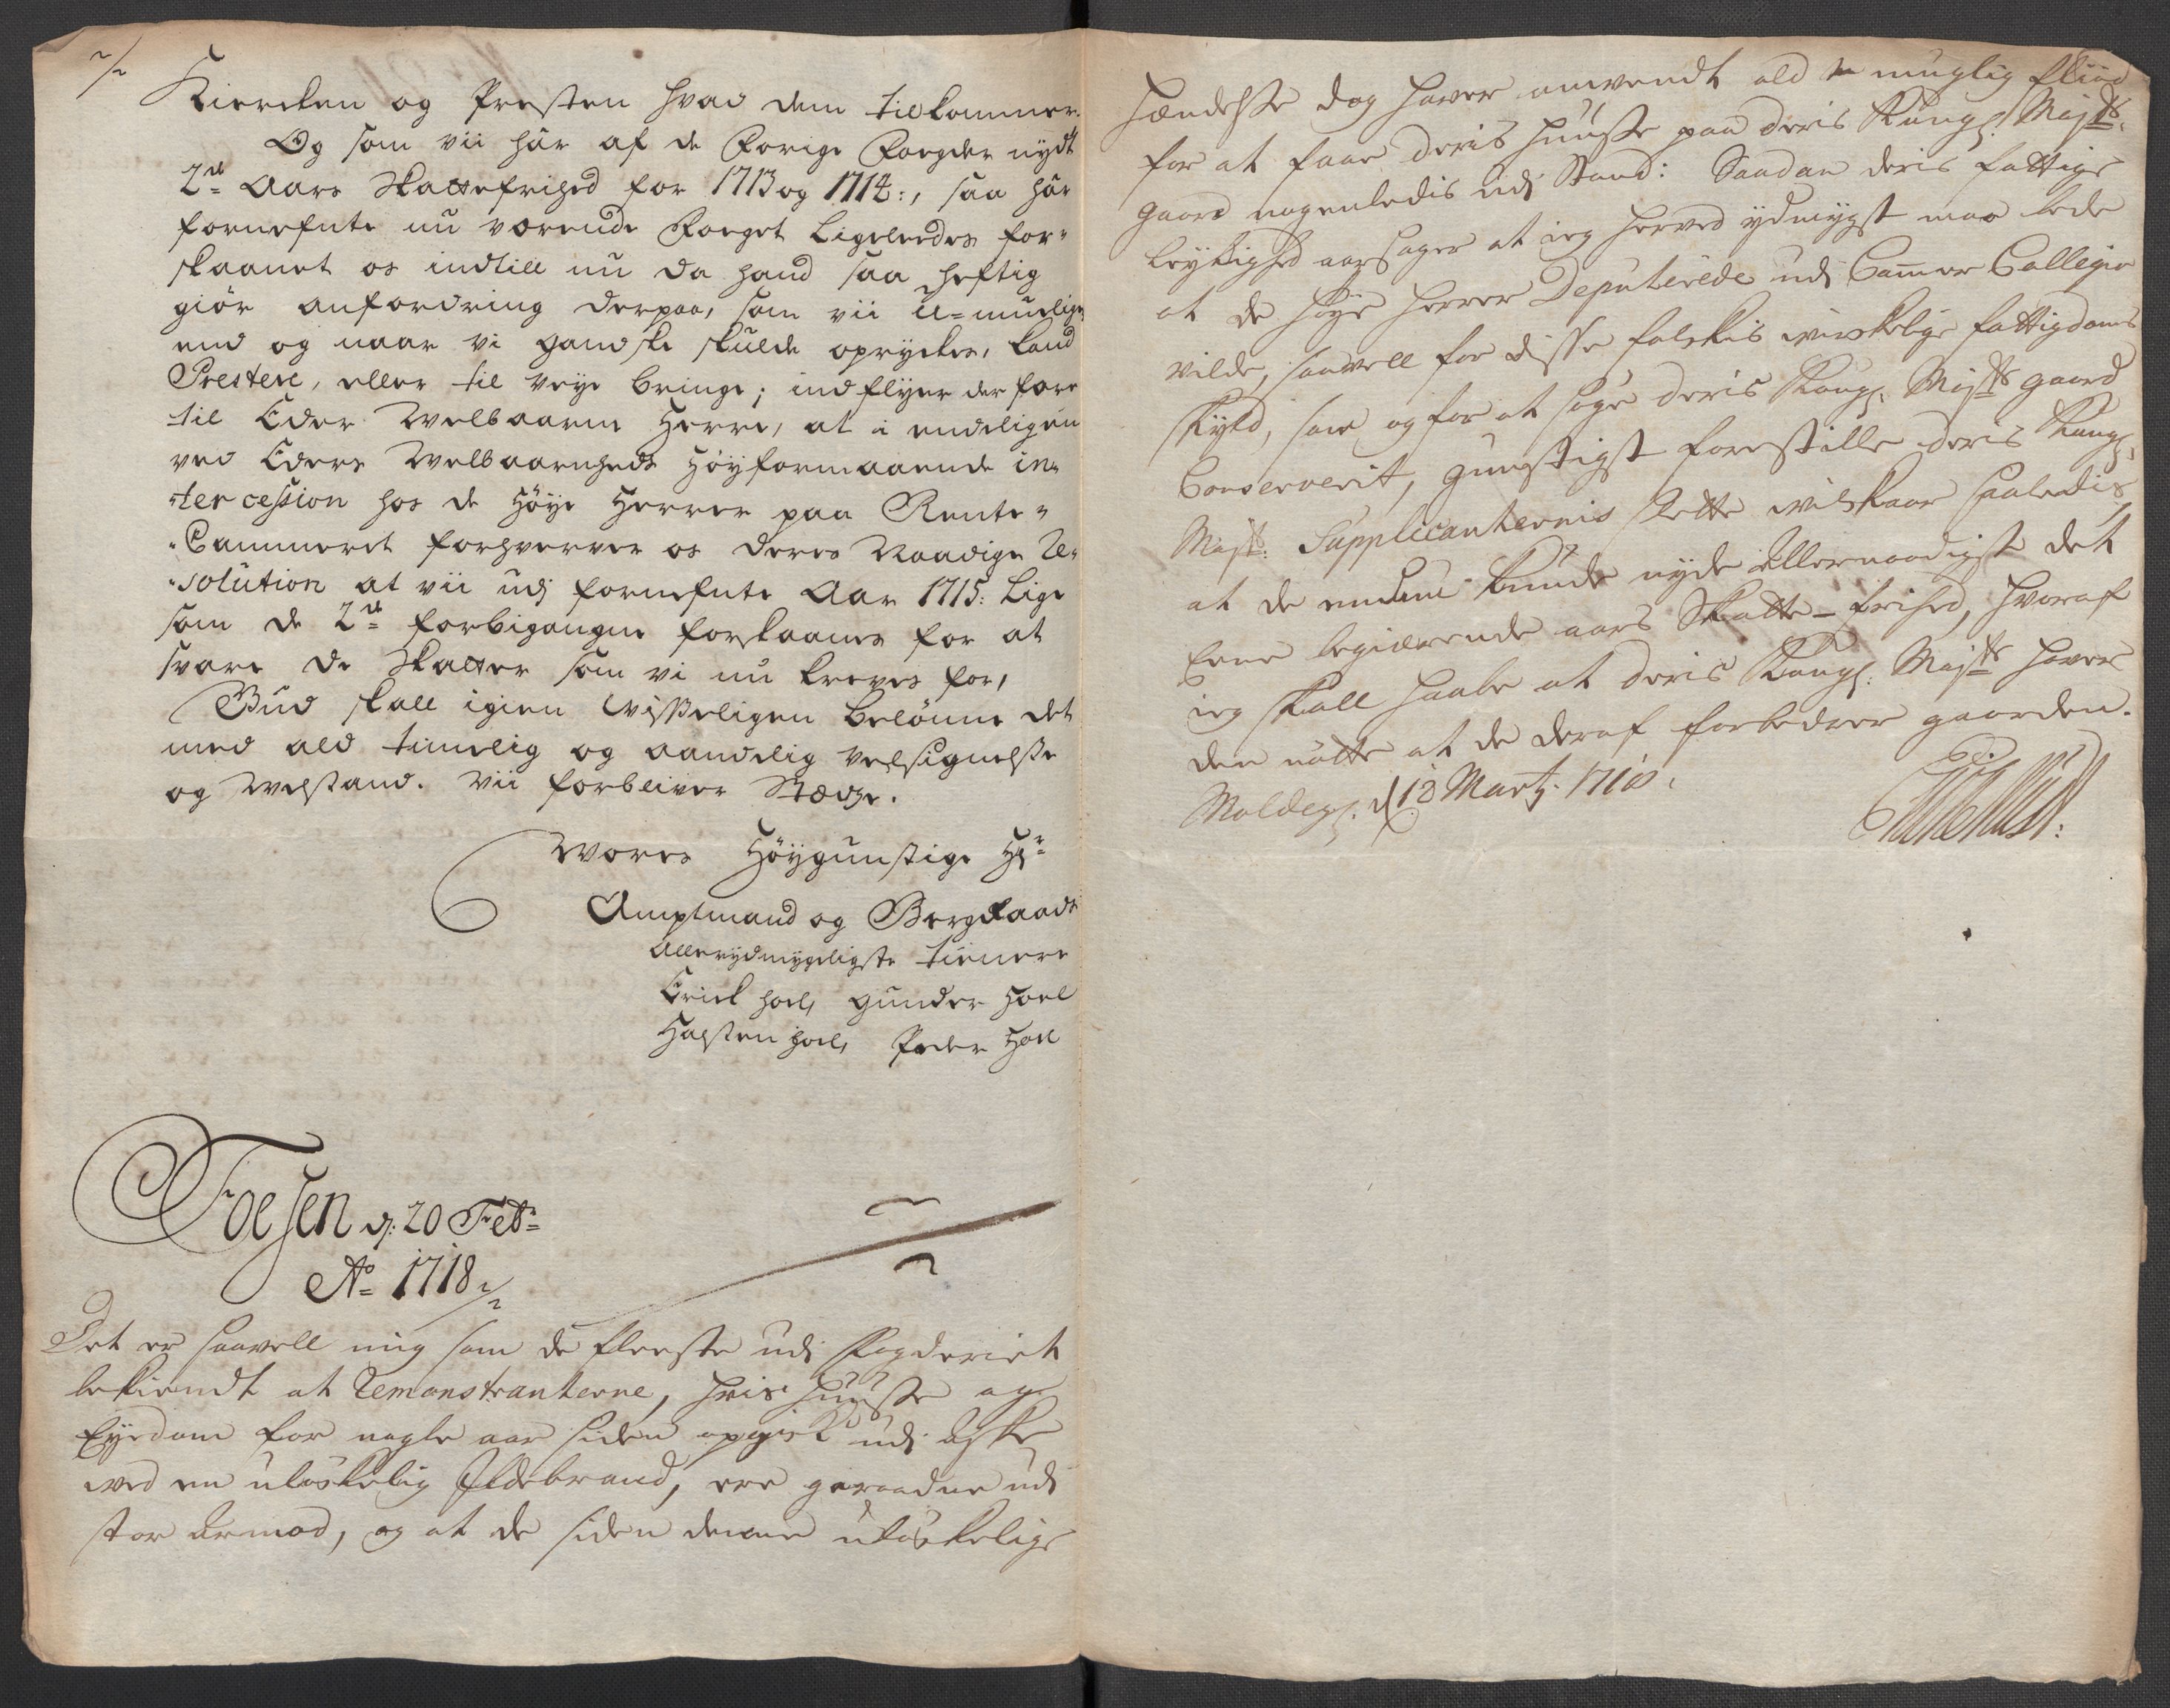 Kiercken og Presten hvad dem tilkommer.
Og som vii har af de Forige Fogder nydt
2de Aars Skattefrihed for 1713 og 1714:, saa har
fornefnte nu værende Foeget Ligeleedes for-
skaanet os indtill nu da hand saa heftig
giør anfordring derpaa, som vii U-muelige
end og naar vi gandske skulde opryckes, kand
Prestere, eller til veye bringe; indflyer derfore
til Eder Welbaarne Herre, at i endeligen
ved Eders Welbaarenheds Høyformaaende in-
-tercession hos de Høye Herrer paa Rente-
-Cammeret forhverver os deres Naadige Re-
-solution at vii udj fornefnte Aar 1715: Lige
som de 2de forbigangne forskaanes for at
svare de Skatter som vi nu kreves for,
Gud skall igien Wisseligen belønne det
med ald timelig og aandelig velsignelsse
og Welstand. Vii forbliver Stædze.
Wores Høygunstige Hr
Amptmand og Bergraads
Allerydmygeligste tienere
Erick Hoel, Gunder Hoel
Halsten Hoel, Peder Hoel
Foesen d: 20 Feb:
Ao 1718
Det er saavell mig som de fleeste udj Fogderiet
bekiendt at Remonstranterne, hvis huusse og
Eyedom for nogle aar siden opgick udj aske
ved en uløskelig Ildebrand, ere geraadne udj
stor armod, og at de siden denne uløskelige
hændelsse dog haver anvendt ald muglig fliid
for at faae deris huusse paa deris Kongl. Maijts
gaard nogenledis udj Stand: Saadan deris fattige
leylighed aarsager at ieg herved ydmygst maa bede
at de høye herrer Deputerede udj Cammer Collegio
vilde, saavell for disse folckis wirckelige fattigdoms
skyld, som og for at søge deris Kongl. Maijts gaard
Conserverit, gunstigst forestille deris Kongl.
Maijt: Supplicanternis slette wilkaar saaledis
at de endnu kunde nyde allernaadigst det
Eene begiærende aars Skatte-frihed, hvoraf
ieg skall haabe at deris Kongl. Maijt haver
den nøtte at de deraf forbedrer gaarden.
Moldegl. d 18 Martj. 1718.